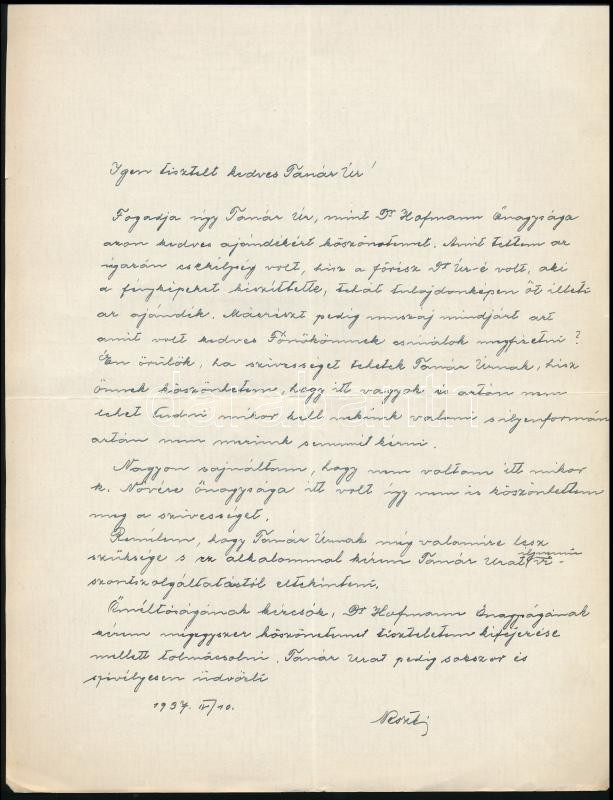 Igen tisztelt kedves Tanár Úr!
Fogadja úgy Tanár Úr, mint Dr Hofmann Őnagysága
azon kedves ajándékért köszönetemet. Amit tettem az
igazán csekélység volt, hisz a főrész Dr Úr-é volt, aki
a fényképeket készíttette, tehát tulajdonképen őt illeti
az ajándék. Másrészt pedig muszáj mindjárt azt
amit volt kedves Főnökömnek csinálok megfizetni?
Én örülök, ha szivességet tehetek Tanár Úrnak, hisz
önnek köszönhetem, hogy itt vagyok és aztán nem
lehet tudni mikor kell nekünk valami s ilyenformán
aztán nem merünk semmit kérni.
Nagyon sajnáltam, hogy nem voltam itt mikor
k. Nővére őnagysága itt volt így nem is köszönhettem
meg a szivességet.
Remélem, hogy Tanár Úrnak még valamire lesz
szüksége s ez alkalommal kérem Tanár Urat vi-
szontszolgáltatástól eltekinteni.
Őméltóságának kézcsók, Dr Hofmann Őnagyságának
kérem mégegyszer köszönetemet tiszteletem kifejezése
mellett tolmácsolni. Tanár Urat pedig sokszor és
szivélyesen üdvözli
1937. IV/10.